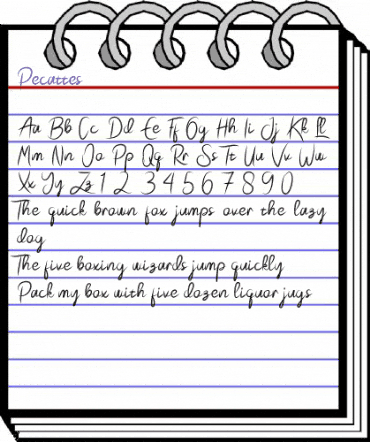 Pecattes
Aa Bb Cc Dd Ee Ff Gg Hh Ii Jj Kk Ll
Mm Nn Oo Pp Qq Rr Ss Tt Uu Vv Ww
Xx Yy Zz 1 2 3 4 5 6 7 8 9 0
The quick brown fox jumps over the lazy
dog
The five boxing wizards jump quickly
Pack my box with five dozen liquor jugs